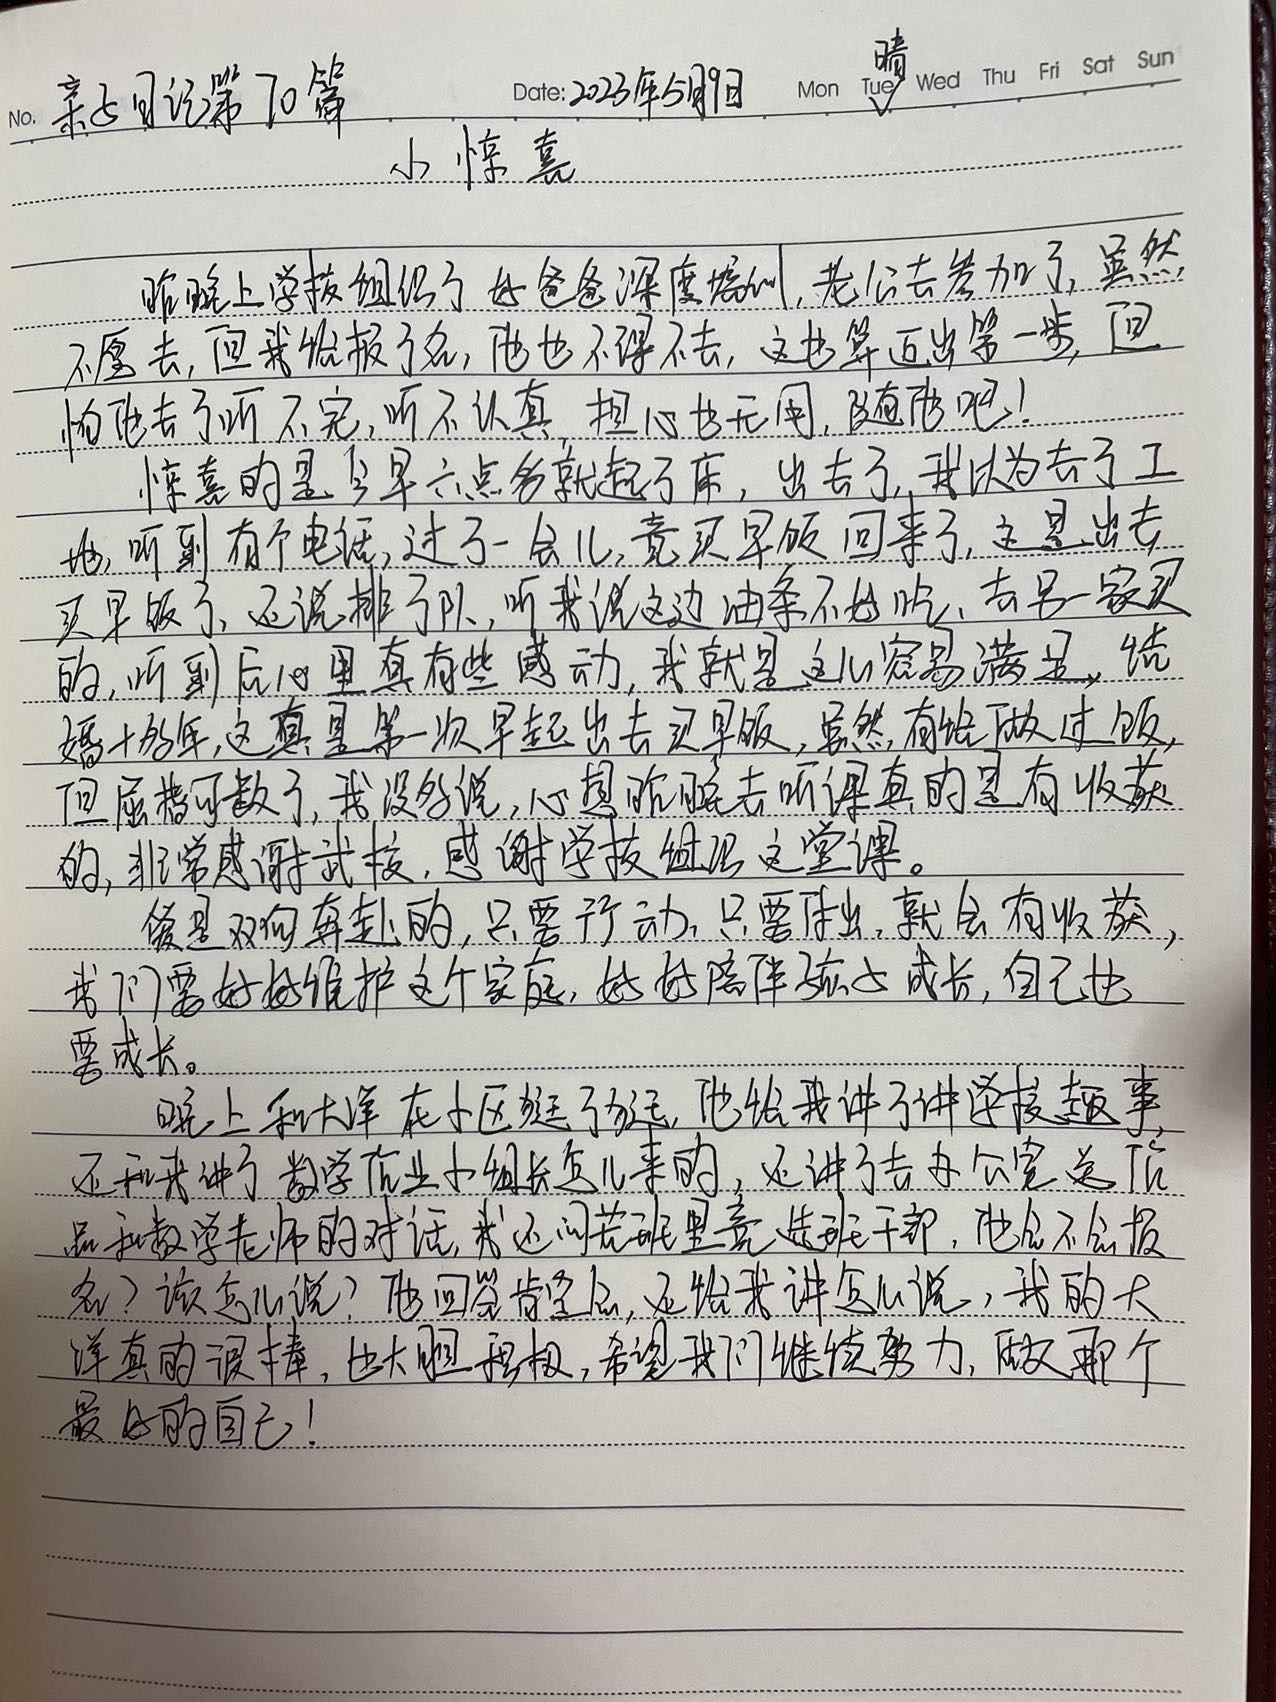 No. 亲子日记第70篇 Date: 2023年5月9日 Mon Tue Wed Thu Fri Sat Sun 晴
小惊喜
昨晚上学校组织了好爸爸深度培训,老公去参加了,虽然
不愿去,但我给报了名,他也不得不去,这也算迈出第一步,但
怕他去了听不完,听不认真,担心也无用,随他吧!
惊喜的是今早六点多就起了床,出去了,我以为去了工
地,听到有个电话,过了一会儿,竟买早饭回来了,这是出去
买早饭了,还说排了队,听我说这边油条不好吃,去另一家买
的,听到后心里真有些感动,我就是这么容易满足,结
婚十多年,这真是第一次早起出去买早饭,虽然有给做过饭,
但屈指可数了,我没多说,心想昨晚去听课真的是有收获
的,非常感谢武校,感谢学校组织这堂课。
爱是双向奔赴的,只要行动,只要付出,就会有收获,
我们要好好维护这个家庭,好好陪伴孩子成长,自己也
要成长。
晚上和大洋在小区玩了玩,他给我讲了讲学校趣事,
还和我讲了数学作业小组长怎么来的,还讲了去办公室送作
品和数学老师的对话,我还问若班里竞选班干部,他会不会报
名?该怎么说?他回答肯定会,还给我讲怎么说,我的大
洋真的很棒,也大胆积极,希望我们继续努力,做那个
最好的自己!